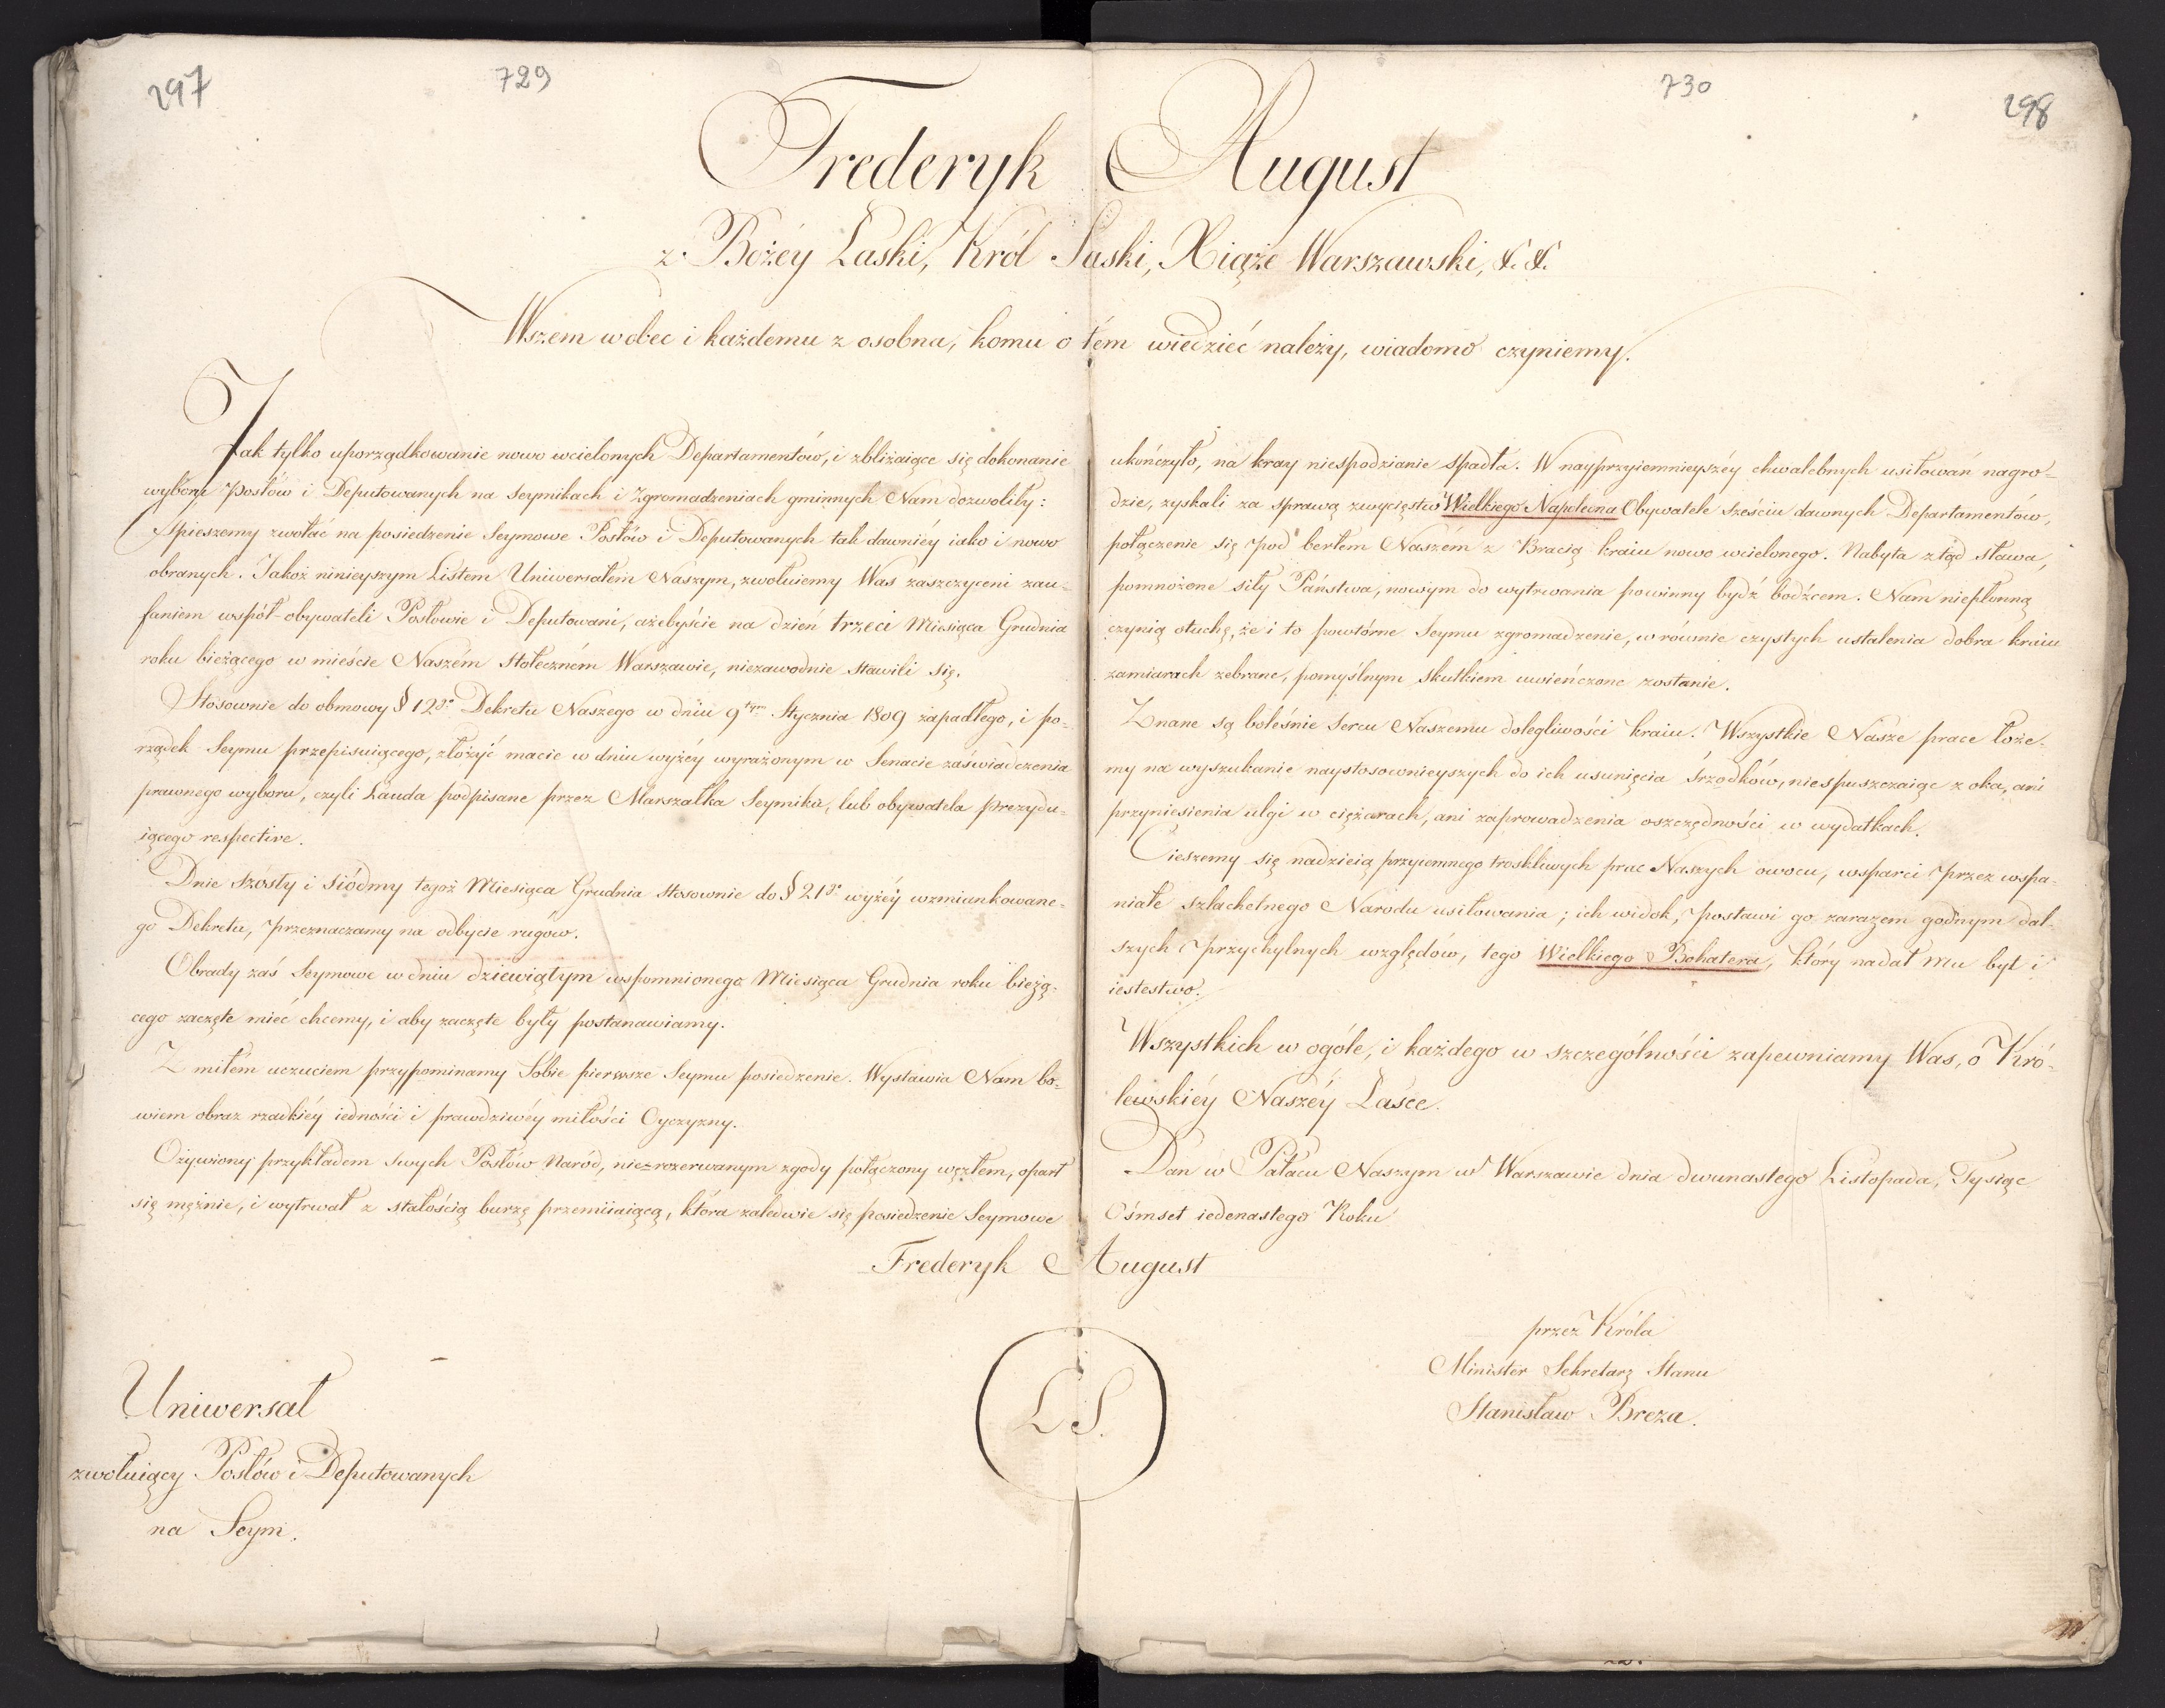 297
729
730
298
Frederyk August
z Bożéy Łaski, Król Saski, Xiąże Warszawski, &. &.
Wszem wobec i każdemu z osobna, komu o tém wiedzieć należy, wiadomo czyniemy.
Jak tylko uporządkowanie nowo wcielonych Departamentów, i zbliżaiące się dokonanie
wyboru Posłów i Deputowanych na Seymikach i Zgromadzeniach gminnych Nam dozwoliły:
Spieszemy zwołać na posiedzenie Seymowe Posłów i Deputowanych tak dawniéy iako i nowo
obranych. Jakoż ninieyszym Listem Uniwersałem Naszym, zwołuiemy Was zaszczyceni zau-
faniem współ-obywateli Posłowie i Deputowani, ażebyście na dzień trzeci Miesiąca Grudnia
roku bieżącego w mieście Naszém Stołeczném Warszawie, niezawodnie stawili się.
Stosownie do obmowy § 12go Dekretu Naszego w dniu 9tym Stycznia 1809 zapadłego, i po-
rządek Seymu przepisuiącego, złożyć macie w dniu wyżéy wyrażonym w Senacie zaświadczenia
prawnego wyboru, czyli Lauda podpisane przez Marszałka Seymiku, lub obywatela prezydu-
iącego respective.
Dnie szósty i siódmy tegoż Miesiąca Grudnia stosownie do § 21go wyżéy wzmiunkowane-
go Dekretu, przeznaczamy na odbycie rugów.
Obrady zaś Seymowe w dniu dziewiątym wspomnionego Miesiąca Grudnia roku bieżą-
cego zaczęte mieć chcemy, i aby zaczęte były postanawiamy.
Z miłém uczuciem przypominamy Sobie pierwsze Seymu posiedzenie. Wystawia Nam bo-
wiem obraz rzadkiéy iedności i prawdziwéy miłości Oyczyzny.
Ożywiony przykładem swych Posłów Naród, nierozerwanym zgody połączony węzłem, oparł
się mężnie, i wytrwał z stałością burzę przemiiaiącą, która zaledwie się posiedzenie Seymowe
ukończyło, na kray niespodzianie spadła. W nayprzyiemnieyszéy chwalebnych usiłowań nagro-
dzie, zyskali za sprawą zwycięstw Wielkiego Napoleona Obywatele sześciu dawnych Departamentów,
połączenie się pod berłem Naszém z Bracią kraiu nowo wcielonego. Nabyta ztąd sława,
pomnożone siły Państwa, nowym do wytrwania powinny bydź bodźcem. Nam niepłonną
czynią otuchę, że i to powtórne Seymu zgromadzenie, w równie czystych ustalenia dobra kraiu
zamiarach zebrane, pomyślnym skutkiem uwieńczone zostanie.
Znane są boleśnie Sercu Naszemu dolegliwości kraiu. Wszystkie Nasze prace łoże-
my na wyszukanie naystosownieyszych do ich usunięcia śrzodków, niespuszczaiąc z oka, ani
przyniesienia ulgi w ciężarach, ani zaprowadzenia oszczędności w wydatkach.
Cieszemy się nadzieią przyiemnego troskliwych prac Naszych owocu, wsparci przez wspa-
niałe szlachetnego Narodu usiłowania; ich widok, postawi go zarazem godnym dal-
szych przychylnych względów, tego Wielkiego Bohatera, który nadał mu byt i
iestestwo.
Wszystkich w ogóle, i każdego w szczególności zapewniamy Was, o Kró-
lewskiéy Naszéy Łasce.
Dan w Pałacu Naszym w Warszawie dnia dwunastego Listopada, Tysiąc
Ośmset iedenastego Roku
Frederyk August
przez Króla
Minister Sekretarz Stanu
Stanisław Breza.
L.S.
Uniwersał
zwołuiący Posłów i Deputowanych
na Seym.